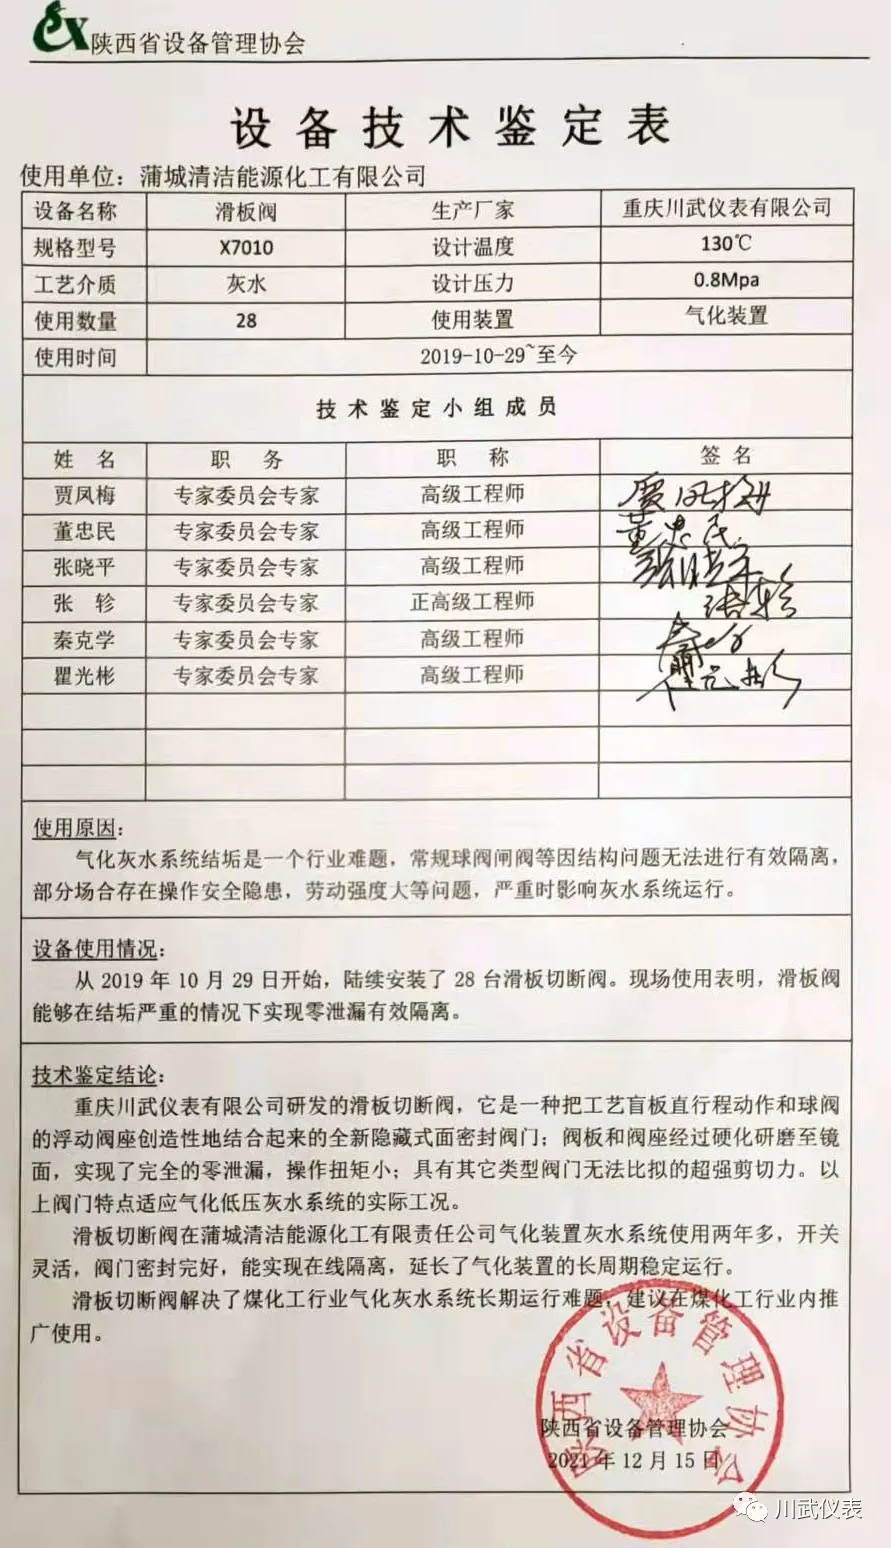 陕西省设备管理协会
设备技术鉴定表
使用单位：蒲城清洁能源化工有限公司
设备名称 滑板阀 生产厂家 重庆川武仪表有限公司
规格型号 X7010 设计温度 130℃
工艺介质 灰水 设计压力 0.8Mpa
使用数量 28 使用装置 气化装置
使用时间 2019-10-29~至今
技术鉴定小组成员
姓 名 职 务 职 称 签 名
贾凤梅 专家委员会专家 高级工程师 贾凤梅
董忠民 专家委员会专家 高级工程师 董忠民
张晓平 专家委员会专家 高级工程师 张晓平
张 轸 专家委员会专家 正高级工程师 张轸
秦克学 专家委员会专家 高级工程师
瞿光彬 专家委员会专家 高级工程师 瞿光彬
使用原因：
气化灰水系统结垢是一个行业难题，常规球阀闸阀等因结构问题无法进行有效隔离，
部分场合存在操作安全隐患，劳动强度大等问题，严重时影响灰水系统运行。
设备使用情况：
从 2019 年 10 月 29 日开始，陆续安装了 28 台滑板切断阀。现场使用表明，滑板阀
能够在结垢严重的情况下实现零泄漏有效隔离。
技术鉴定结论：
重庆川武仪表有限公司研发的滑板切断阀，它是一种把工艺盲板直行程动作和球阀
的浮动阀座创造性地结合起来的全新隐藏式面密封阀门；阀板和阀座经过硬化研磨至镜
面，实现了完全的零泄漏，操作扭矩小；具有其它类型阀门无法比拟的超强剪切力。以
上阀门特点适应气化低压灰水系统的实际工况。
滑板切断阀在蒲城清洁能源化工有限责任公司气化装置灰水系统使用两年多，开关
灵活，阀门密封完好，能实现在线隔离，延长了气化装置的长周期稳定运行。
滑板切断阀解决了煤化工行业气化灰水系统长期运行难题，建议在煤化工行业内推
广使用。
陕西省设备管理协会
陕西省设备管理协会
2021 年 12 月 15 日
川武仪表